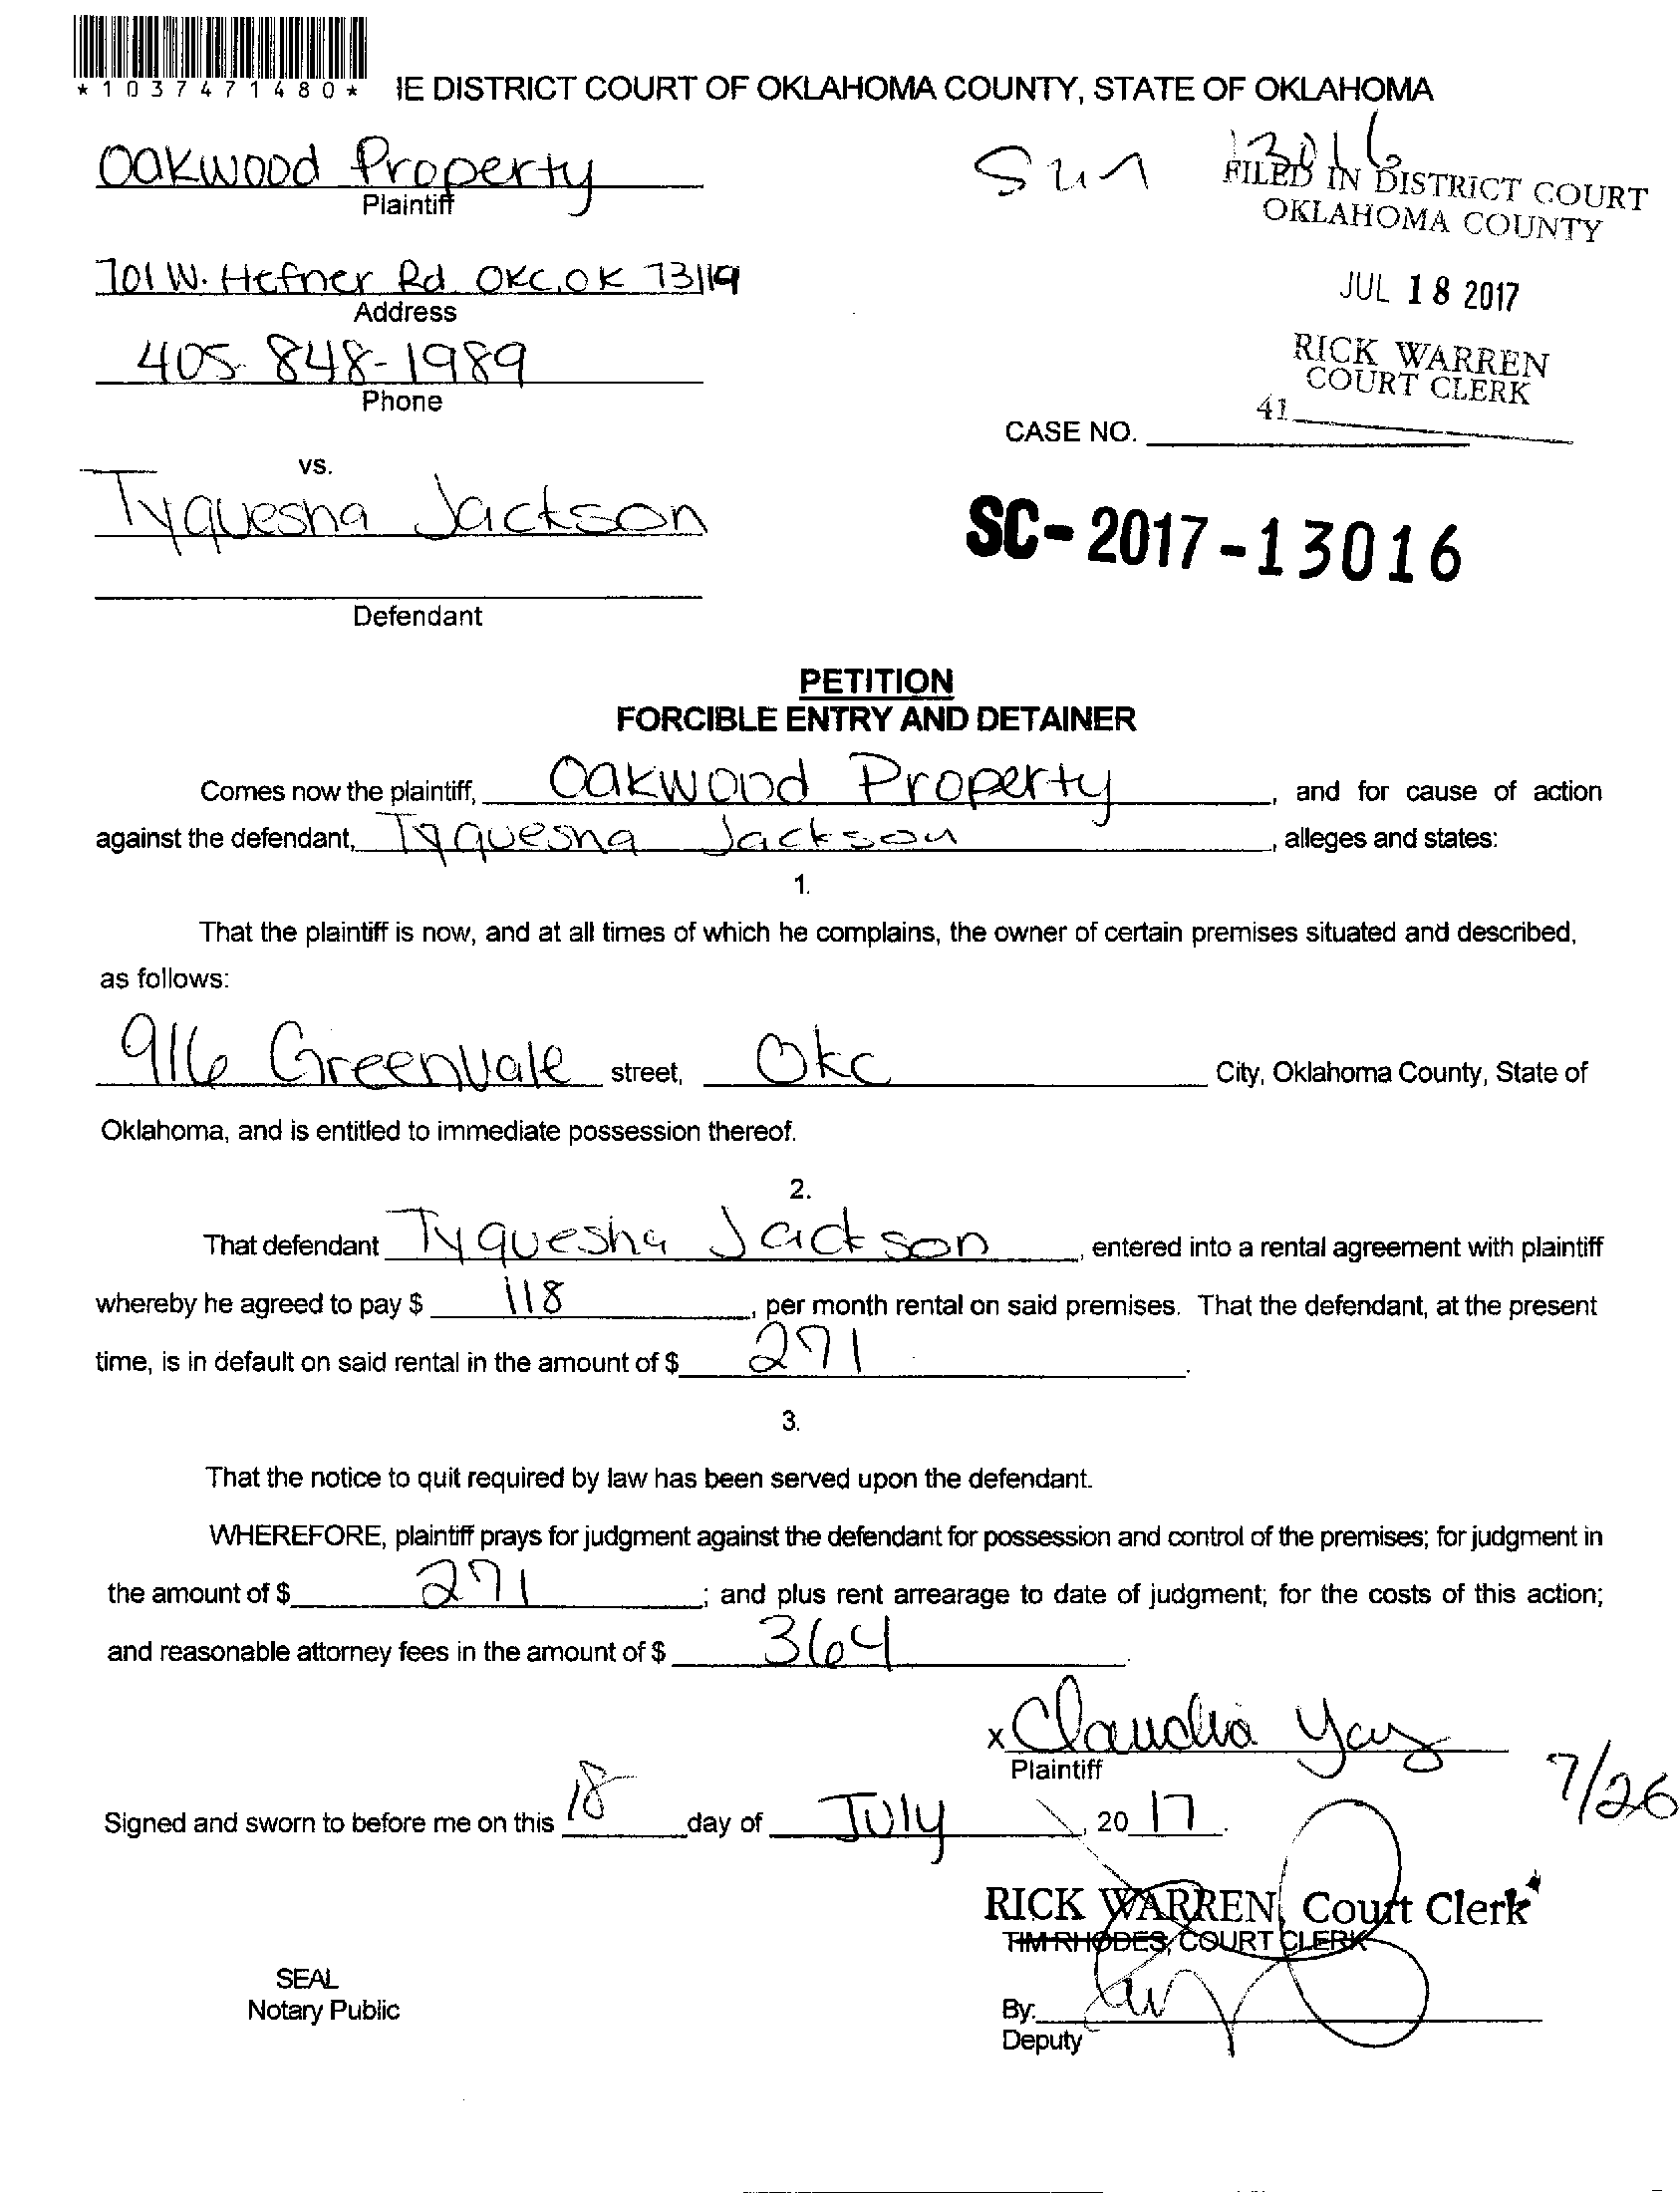 *1037471480*
IE DISTRICT COURT OF OKLAHOMA COUNTY, STATE OF OKLAHOMA
Oakwood Property
Plaintiff
13016
FILED IN DISTRICT COURT
OKLAHOMA COUNTY
701 W. Hefner Rd. OKC, OK 73119
Address
JUL 18 2017
405-848-1989
Phone
RICK WARREN
COURT CLERK
41
CASE NO.
vs.
Tyquesha Jackson
SC-2017-13016
Defendant
PETITION
FORCIBLE ENTRY AND DETAINER
Comes now the plaintiff, Oakwood Property, and for cause of action
against the defendant, Tyquesha Jackson, alleges and states:
1.
That the plaintiff is now, and at all times of which he complains, the owner of certain premises situated and described,
as follows:
916 Greenvale street, Okc City, Oklahoma County, State of
Oklahoma, and is entitled to immediate possession thereof.
2.
That defendant Tyquesha Jackson, entered into a rental agreement with plaintiff
whereby he agreed to pay $ 118, per month rental on said premises. That the defendant, at the present
time, is in default on said rental in the amount of $ 271.
3.
That the notice to quit required by law has been served upon the defendant.
WHEREFORE, plaintiff prays for judgment against the defendant for possession and control of the premises; for judgment in
the amount of $ 271; and plus rent arrearage to date of judgment; for the costs of this action;
and reasonable attorney fees in the amount of $ 364.
x Claudia
Plaintiff
7/26
Signed and sworn to before me on this 18 day of July, 20 17.
RICK WARREN, Court Clerk
TIM RHODES, COURT CLERK
SEAL
Notary Public
By:
Deputy